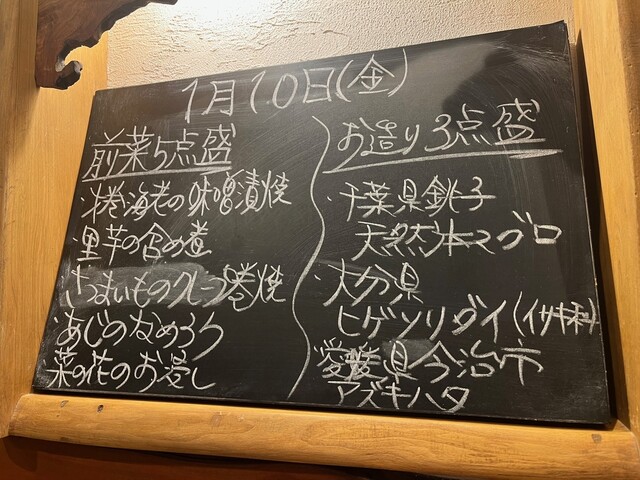 1月10日(金)
前菜5点盛
・巻海老の味噌漬焼
里芋の含め煮
さつまいものクレープ巻焼
あじのなめろう
菜の花のお浸し
お造り3点盛
・千葉県銚子
天然本マグロ
・大分県
ヒゲソリダイ(イサキ科)
愛媛県今治市
アズキハタ